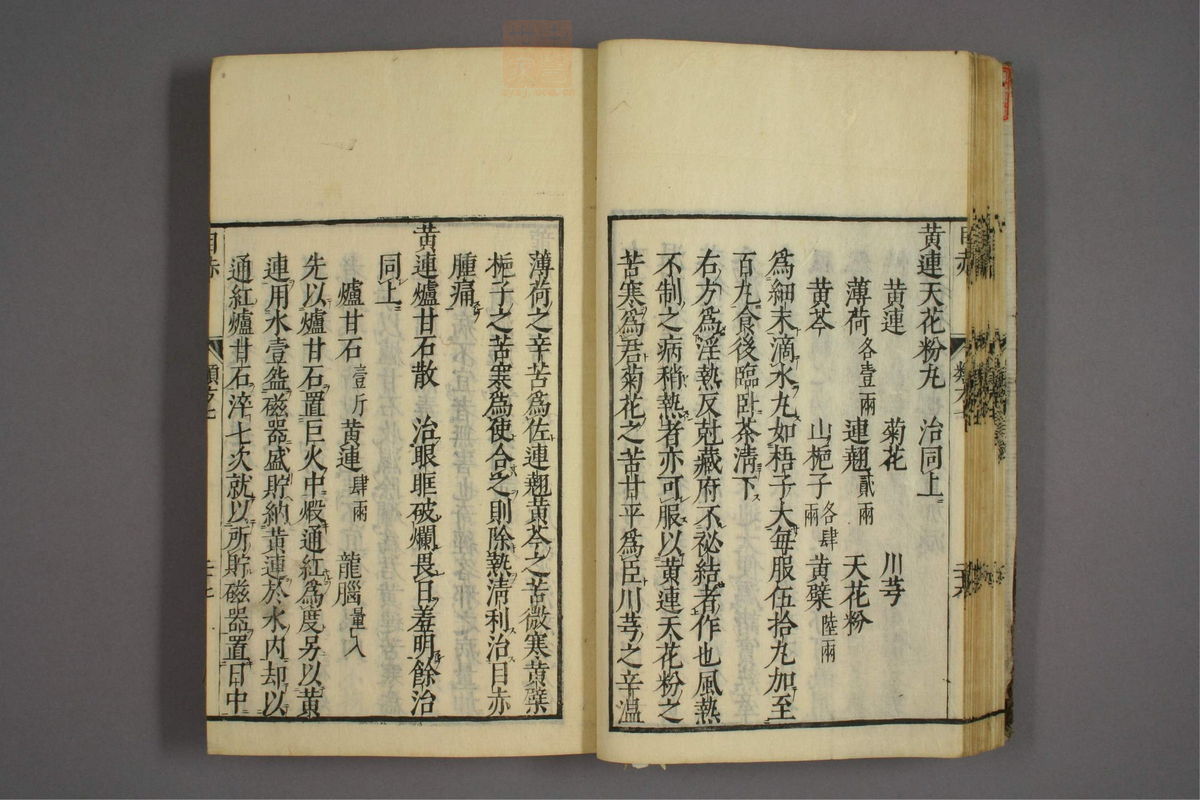 黄連天花粉丸 治同上
黄連 菊花 川芎
薄荷各壹兩 連翹貳兩 天花粉
黄芩 山梔子各肆兩 黄檗陸兩
爲細末滴水丸如梧子大每服伍拾丸加至
百丸食後臨臥茶清下
右方爲淫熱反尅藏府不祕結者作也風熱
不制之病稍熱者亦可服以黄連天花粉之
苦寒爲君菊花之苦甘平爲臣川芎之辛温
薄荷之辛苦爲佐連翹黄芩之苦微寒黄檗
梔子之苦寒爲使合之則除熱清利治目赤
腫痛
黄連爐甘石散 治眼眶破爛畏日羞明餘治
同上
爐甘石壹斤 黄連肆兩 龍腦量入
先以爐甘石置巨火中煅通紅爲度另以黄
連用水壹盌磁器盛貯納黄連於水内却以
通紅爐甘石淬七次就以所貯磁器置日中
目赤